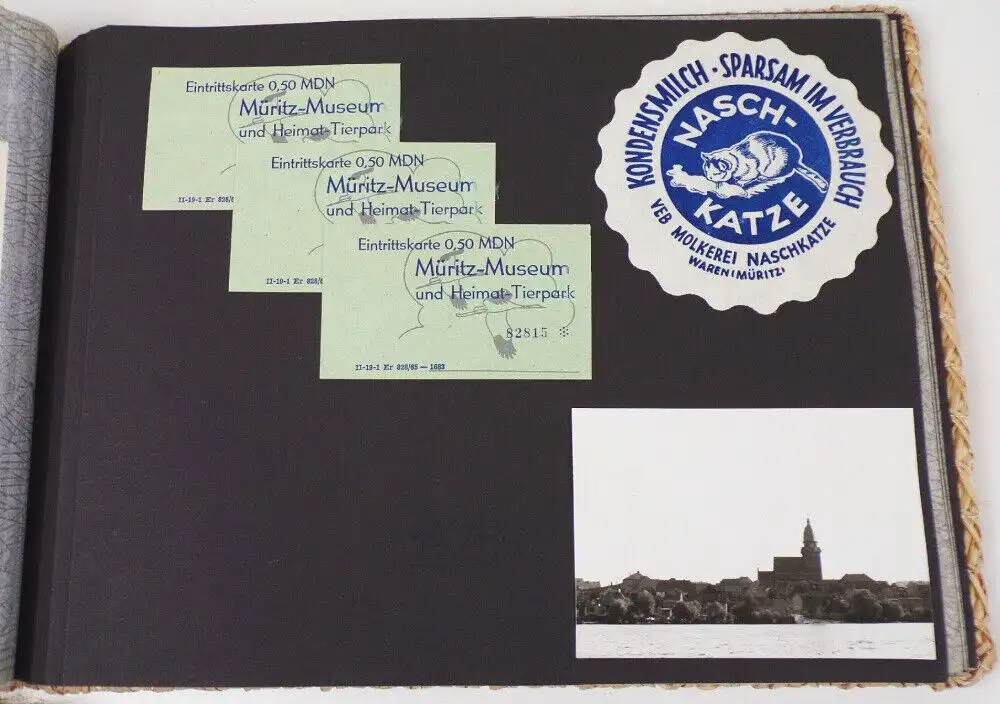 Eintrittskarte 0,50 MDN
Müritz-Museum
und Heimat-Tierpark
II-19-1 Er 828/6
Eintrittskarte 0,50 MDN
Müritz-Museum
und Heimat-Tierpark
II-19-1 Er 828/6
Eintrittskarte 0,50 MDN
Müritz-Museum
und Heimat-Tierpark
82815 ※
II-19-1 Er 828/65 — 1683
KONDENSMILCH · SPARSAM IM VERBRAUCH
NASCH-
KATZE
VEB MOLKEREI NASCHKATZE
WAREN (MÜRITZ)